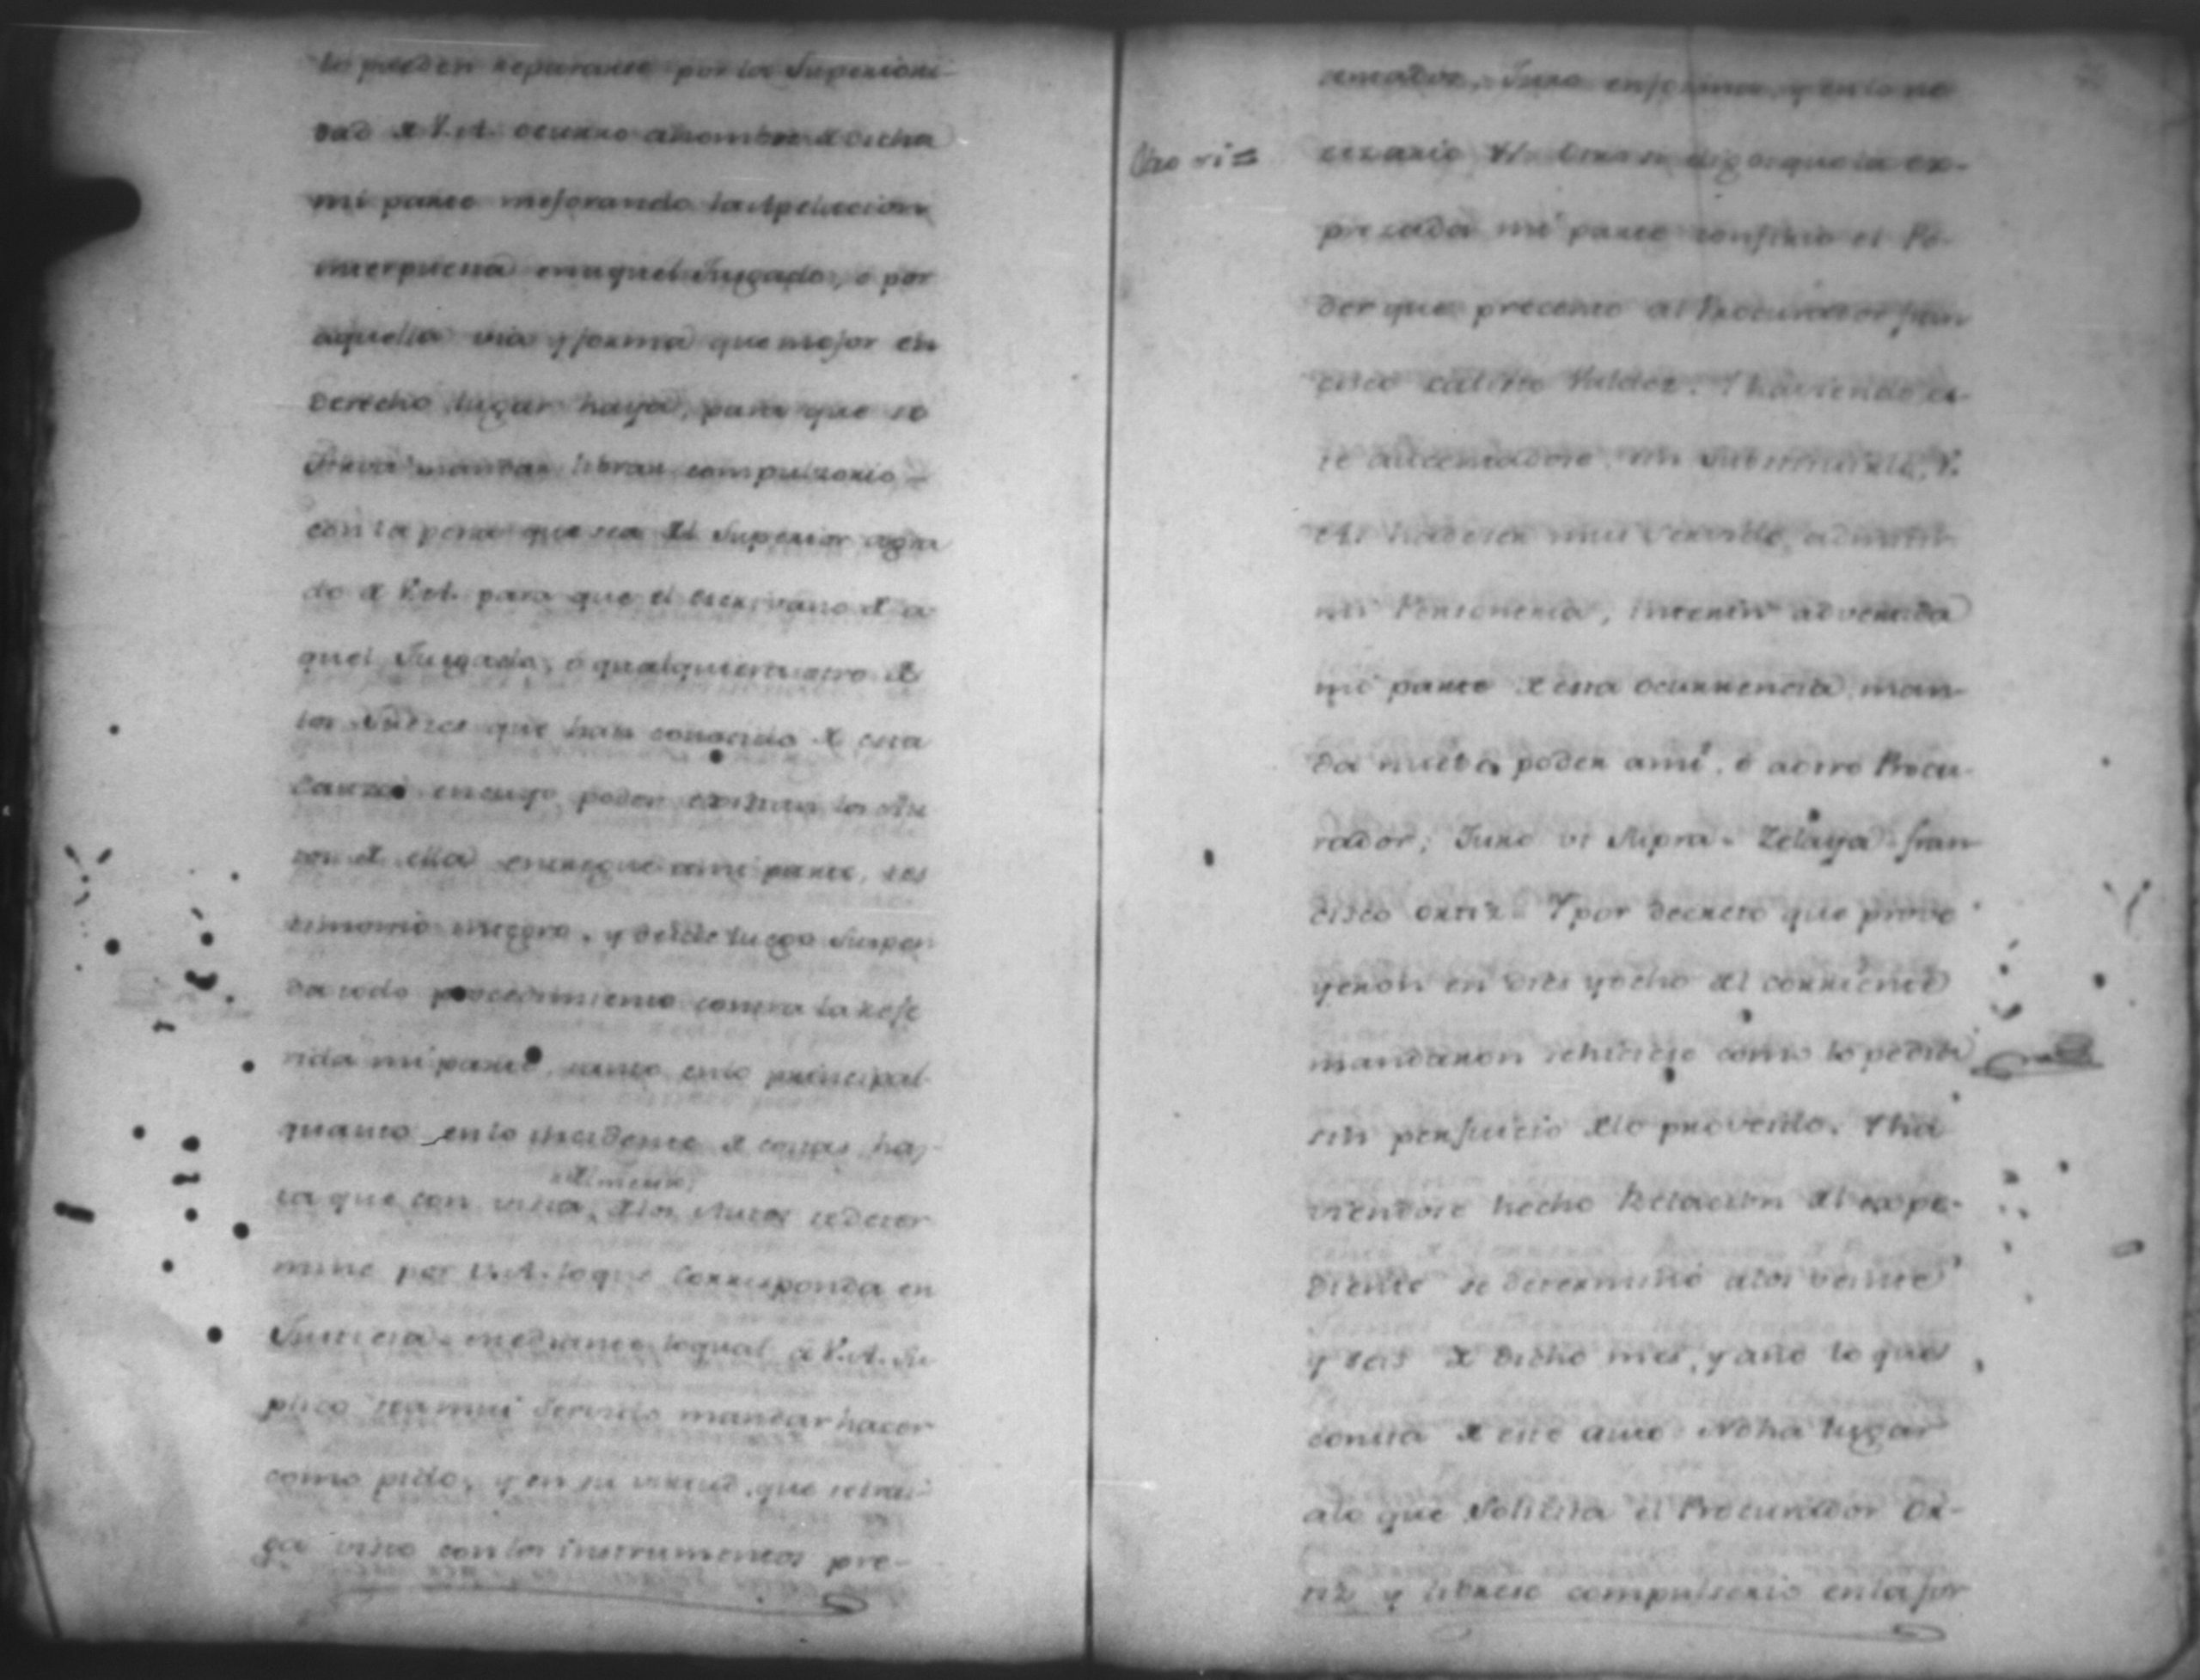 lo pueden repararse por la Superiori-
dad de V.A. ocurro a nombre de dicha
mi parte mejorando la Apelacion
interpuesta en aquel Jusgado, o por
aquella via y forma que mejor en
derecho lugar haya, para que se
sirva mandar librar compulsorio
con la pena que sea del Superior agra
do de V.A. para que el Escrivano de a
quel Jusgado, o qualquiera otro de
los Jueces que han conosido de esta
Causa en cuyo poder existan los Au
tos de ella entregue a mi parte, tes
timonio integro, y desde luego suspen
da todo procedimiento contra la refe
rida mi parte, tanto en lo principal
quanto en lo insidente de costas has-
ta que con vista de los Autos se deter
mine por V.A. lo que corresponda en
Justicia = mediante lo qual a V.A. Su
plico sea mui servido mandar hacer
como pido, y en su virtud que se trai-
ga visto con los instrumentos pre-
sentados, Juro en forma, y en lo ne
Otro si =
cesario Va. Otro si digo: que la ex-
prezada mi parte confirio el Po-
der que precento al Procurador Fran
cisco Calisto Valdez. Y haviendo es-
te aucentadose, sin substituirle, V.
A. ha de ser mui servido, admitir
mi Personeria, interin advertida
mi parte de esta ocurrencia, man-
da nuebo poder a mi, o a otro Procu-
rador; Juro ut Supra = Zelaya = Fran
cisco Ortiz = Y por decreto que prove
yeron en dies y ocho del corriente
mandaron se hiciese como lo pedia
sin perjuicio de lo proveido. Y ha
viendose hecho Relacion del expe-
diente se determinó a los veinte
y seis de dicho mes, y año lo que
consta de este auto No ha lugar
a lo que Solicita el Procurador Or-
tiz y librese compulsorio en la for